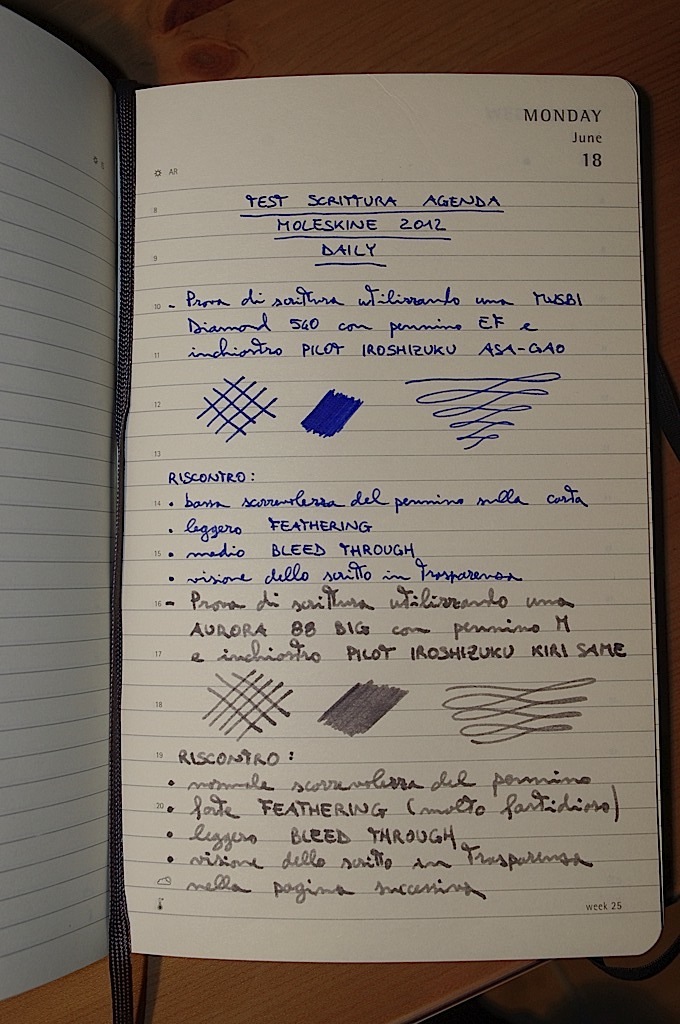 MONDAY
June
18
AR
TEST SCRITTURA AGENDA
8
MOLESKINE 2012
DAILY
9
10 - Prova di scrittura utilizzando una TWSBI
Diamond 540 con pennino EF e
11 inchiostro PILOT IROSHIZUKU ASA-GAO
12
13
RISCONTRO:
14 • bassa scorrevolezza del pennino sulla carta
• leggero FEATHERING
15 • medio BLEED THROUGH
• visione dello scritto in trasparenza
16 - Prova di scrittura utilizzando una
AURORA 88 BIG con pennino M
17 e inchiostro PILOT IROSHIZUKU KIRI SAME
18
19 RISCONTRO:
• normale scorrevolezza del pennino
20 • forte FEATHERING (molto fastidioso)
• leggero BLEED THROUGH
• visione dello scritto in trasparenza
nella pagina successiva
week 25